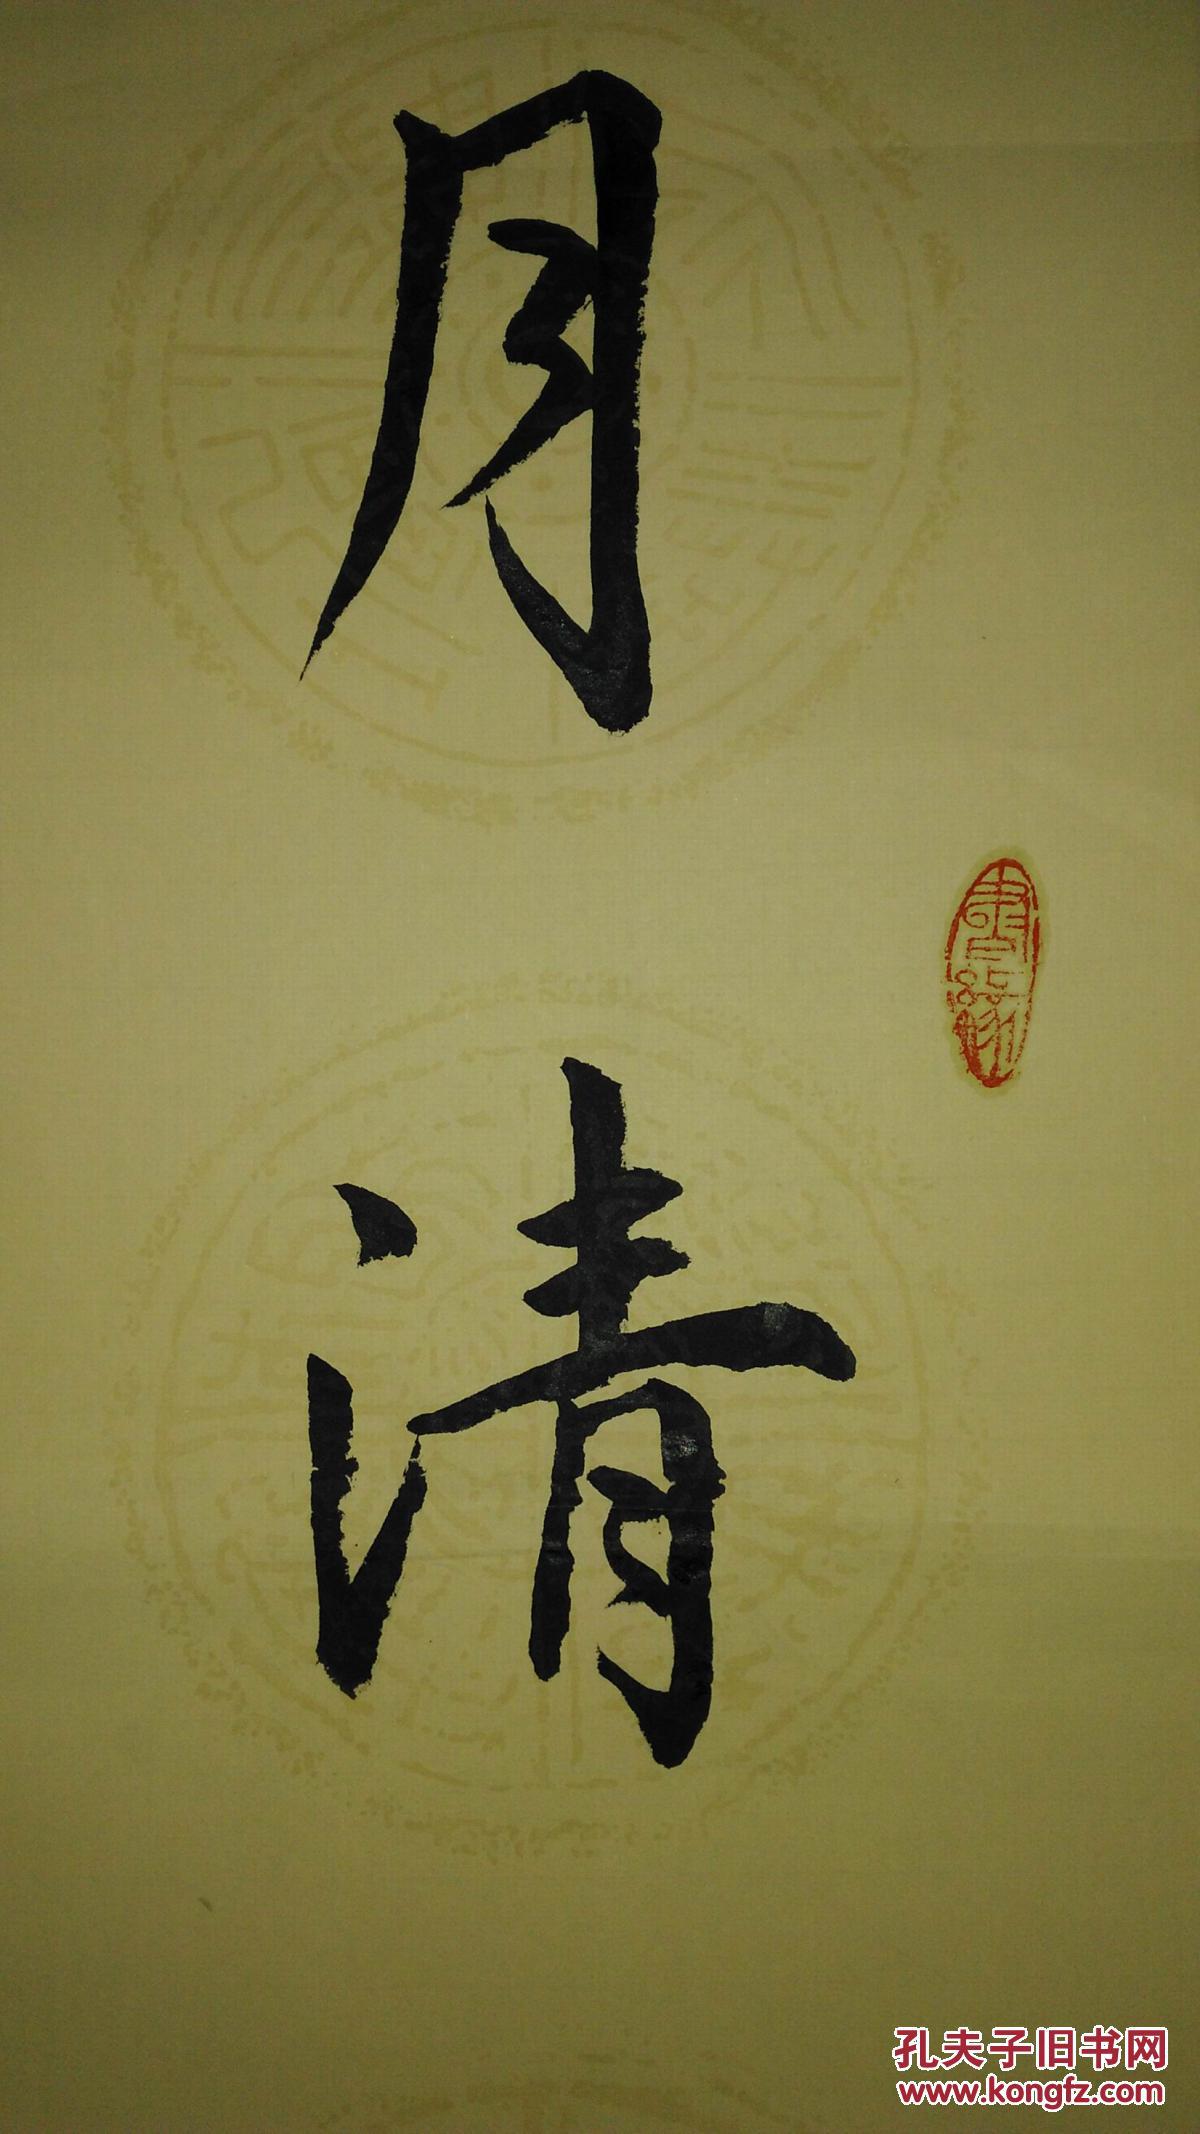 月
清
孔夫子旧书网
www.kongfz.com